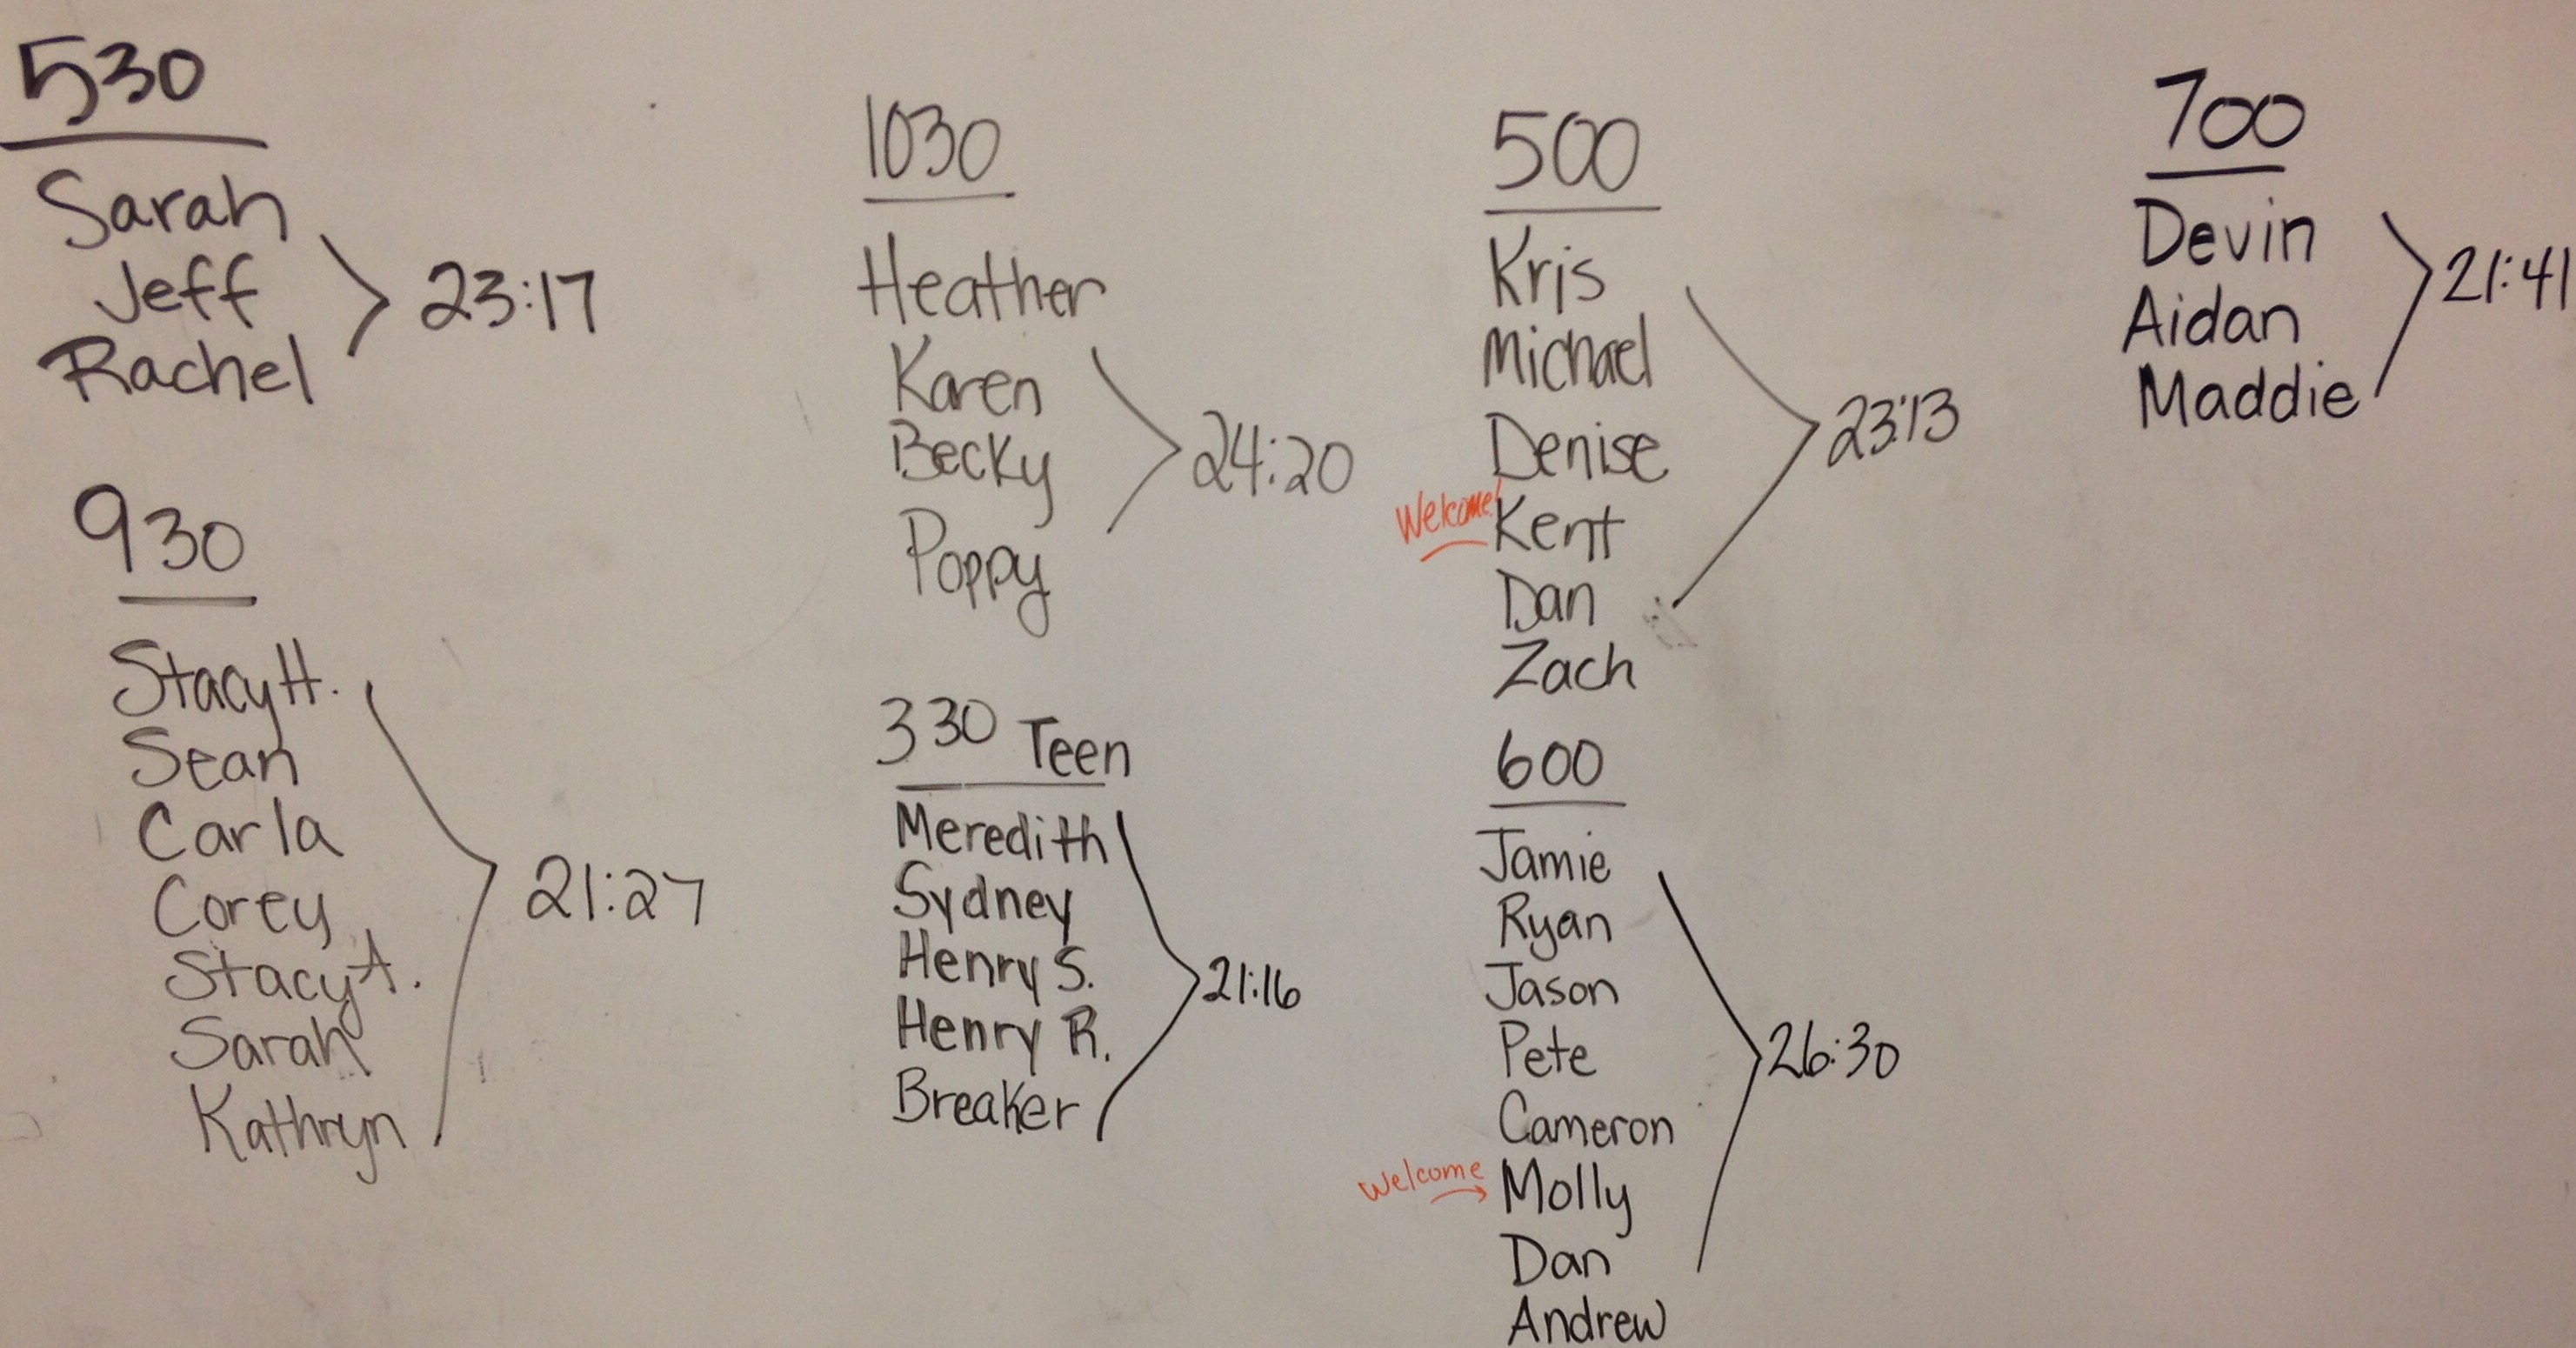 530
Sarah
Jeff
Rachel
23:17
930
Stacy H.
Sean
Carla
Corey
Stacy A.
Sarah
Kathryn
21:27
1030
Heather
Karen
Becky
Poppy
24:20
330 Teen
Meredith
Sydney
Henry S.
Henry R.
Breaker
21:16
500
Kris
Michael
Denise
Welcome! Kent
Dan
Zach
23:13
600
Jamie
Ryan
Jason
Pete
Cameron
Welcome Molly
Dan
Andrew
26:30
700
Devin
Aidan
Maddie
21:41